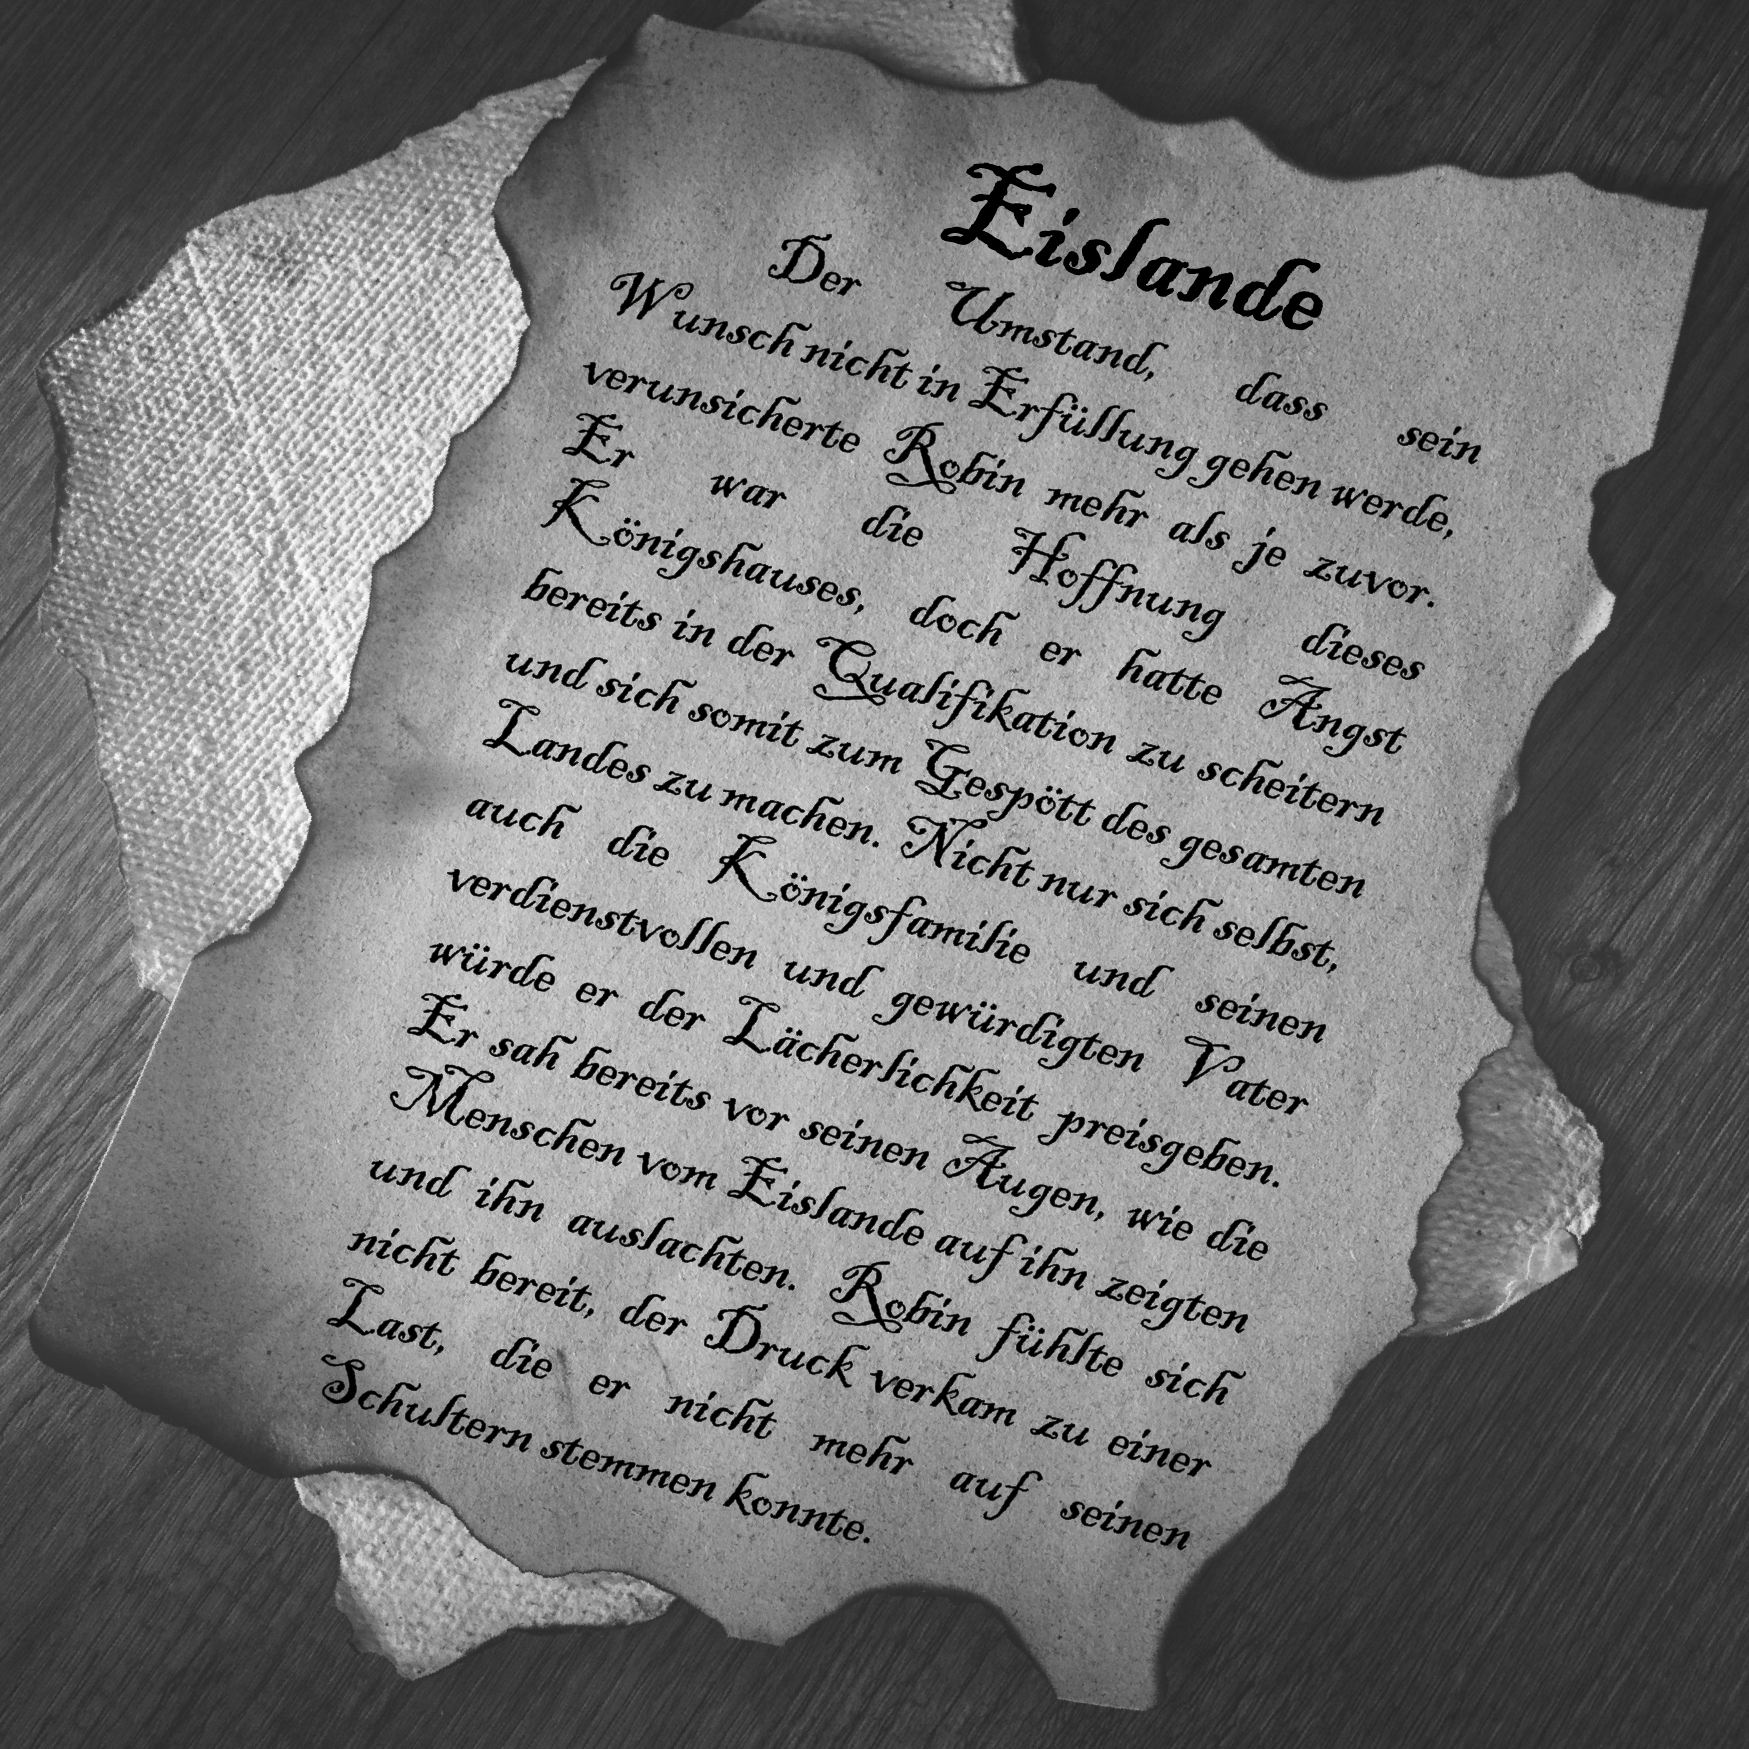 Eislande
Der Umstand, dass sein
Wunsch nicht in Erfüllung gehen werde,
verunsicherte Robin mehr als je zuvor.
Er war die Hoffnung dieses
Königshauses, doch er hatte Angst
bereits in der Qualifikation zu scheitern
und sich somit zum Gespött des gesamten
Landes zu machen. Nicht nur sich selbst,
auch die Königsfamilie und seinen
verdienstvollen und gewürdigten Vater
würde er der Lächerlichkeit preisgeben.
Er sah bereits vor seinen Augen, wie die
Menschen vom Eislande auf ihn zeigten
und ihn auslachten. Robin fühlte sich
nicht bereit, der Druck verkam zu einer
Last, die er nicht mehr auf seinen
Schultern stemmen konnte.